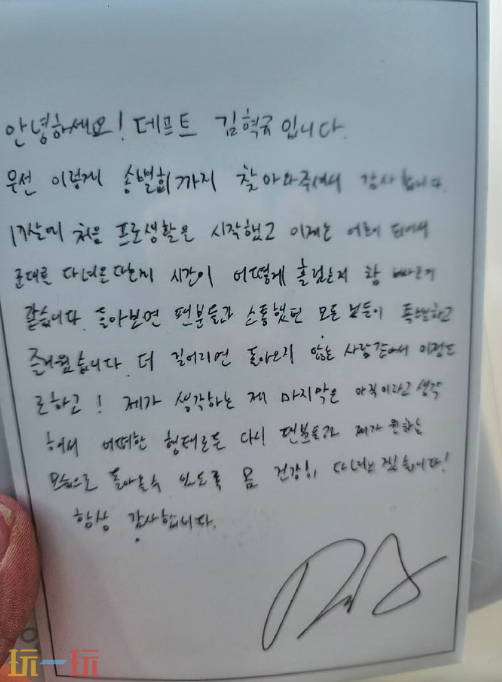 안녕하세요! 데프트 김혁규입니다.
우선 이렇게 송별회까지 찾아와주셔서 감사합니다.
17살에 처음 프로생활을 시작했고 이제는 어른이 되어서
군대를 다녀온다는게 시간이 어떻게 흘렀는지 참 빠른거
같습니다. 돌아보면 팬분들과 소통했던 모든 날들이 특별하고
즐거웠습니다. 더 길어지면 돌아오지 않는 사람같아서 이정도
로하고! 제가 생각하는 제 마지막은 아직이라고 생각
해서 어떠한 형태로든 다시 팬분들과 제가 원하는
모습으로 돌아올수 있도록 몸 건강히 다녀오겠습니다!
항상 감사합니다.
玩一玩